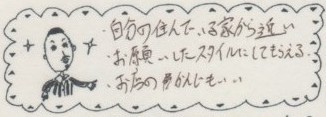 ・自分の住んでいる家から近い
・お願いしたスタイルにしてもらえる。
・お店のかんじもいい